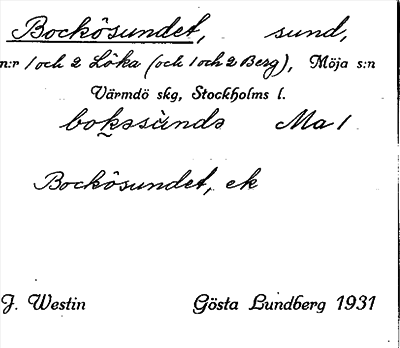 Bockösundet, sund,
n:r 1 och 2 Löka (och 1 och 2 Berg), Möja s:n
Värmdö skg, Stockholms l.
Ma 1
Bockösundet, ek
J. Westin Gösta Lundberg 1931